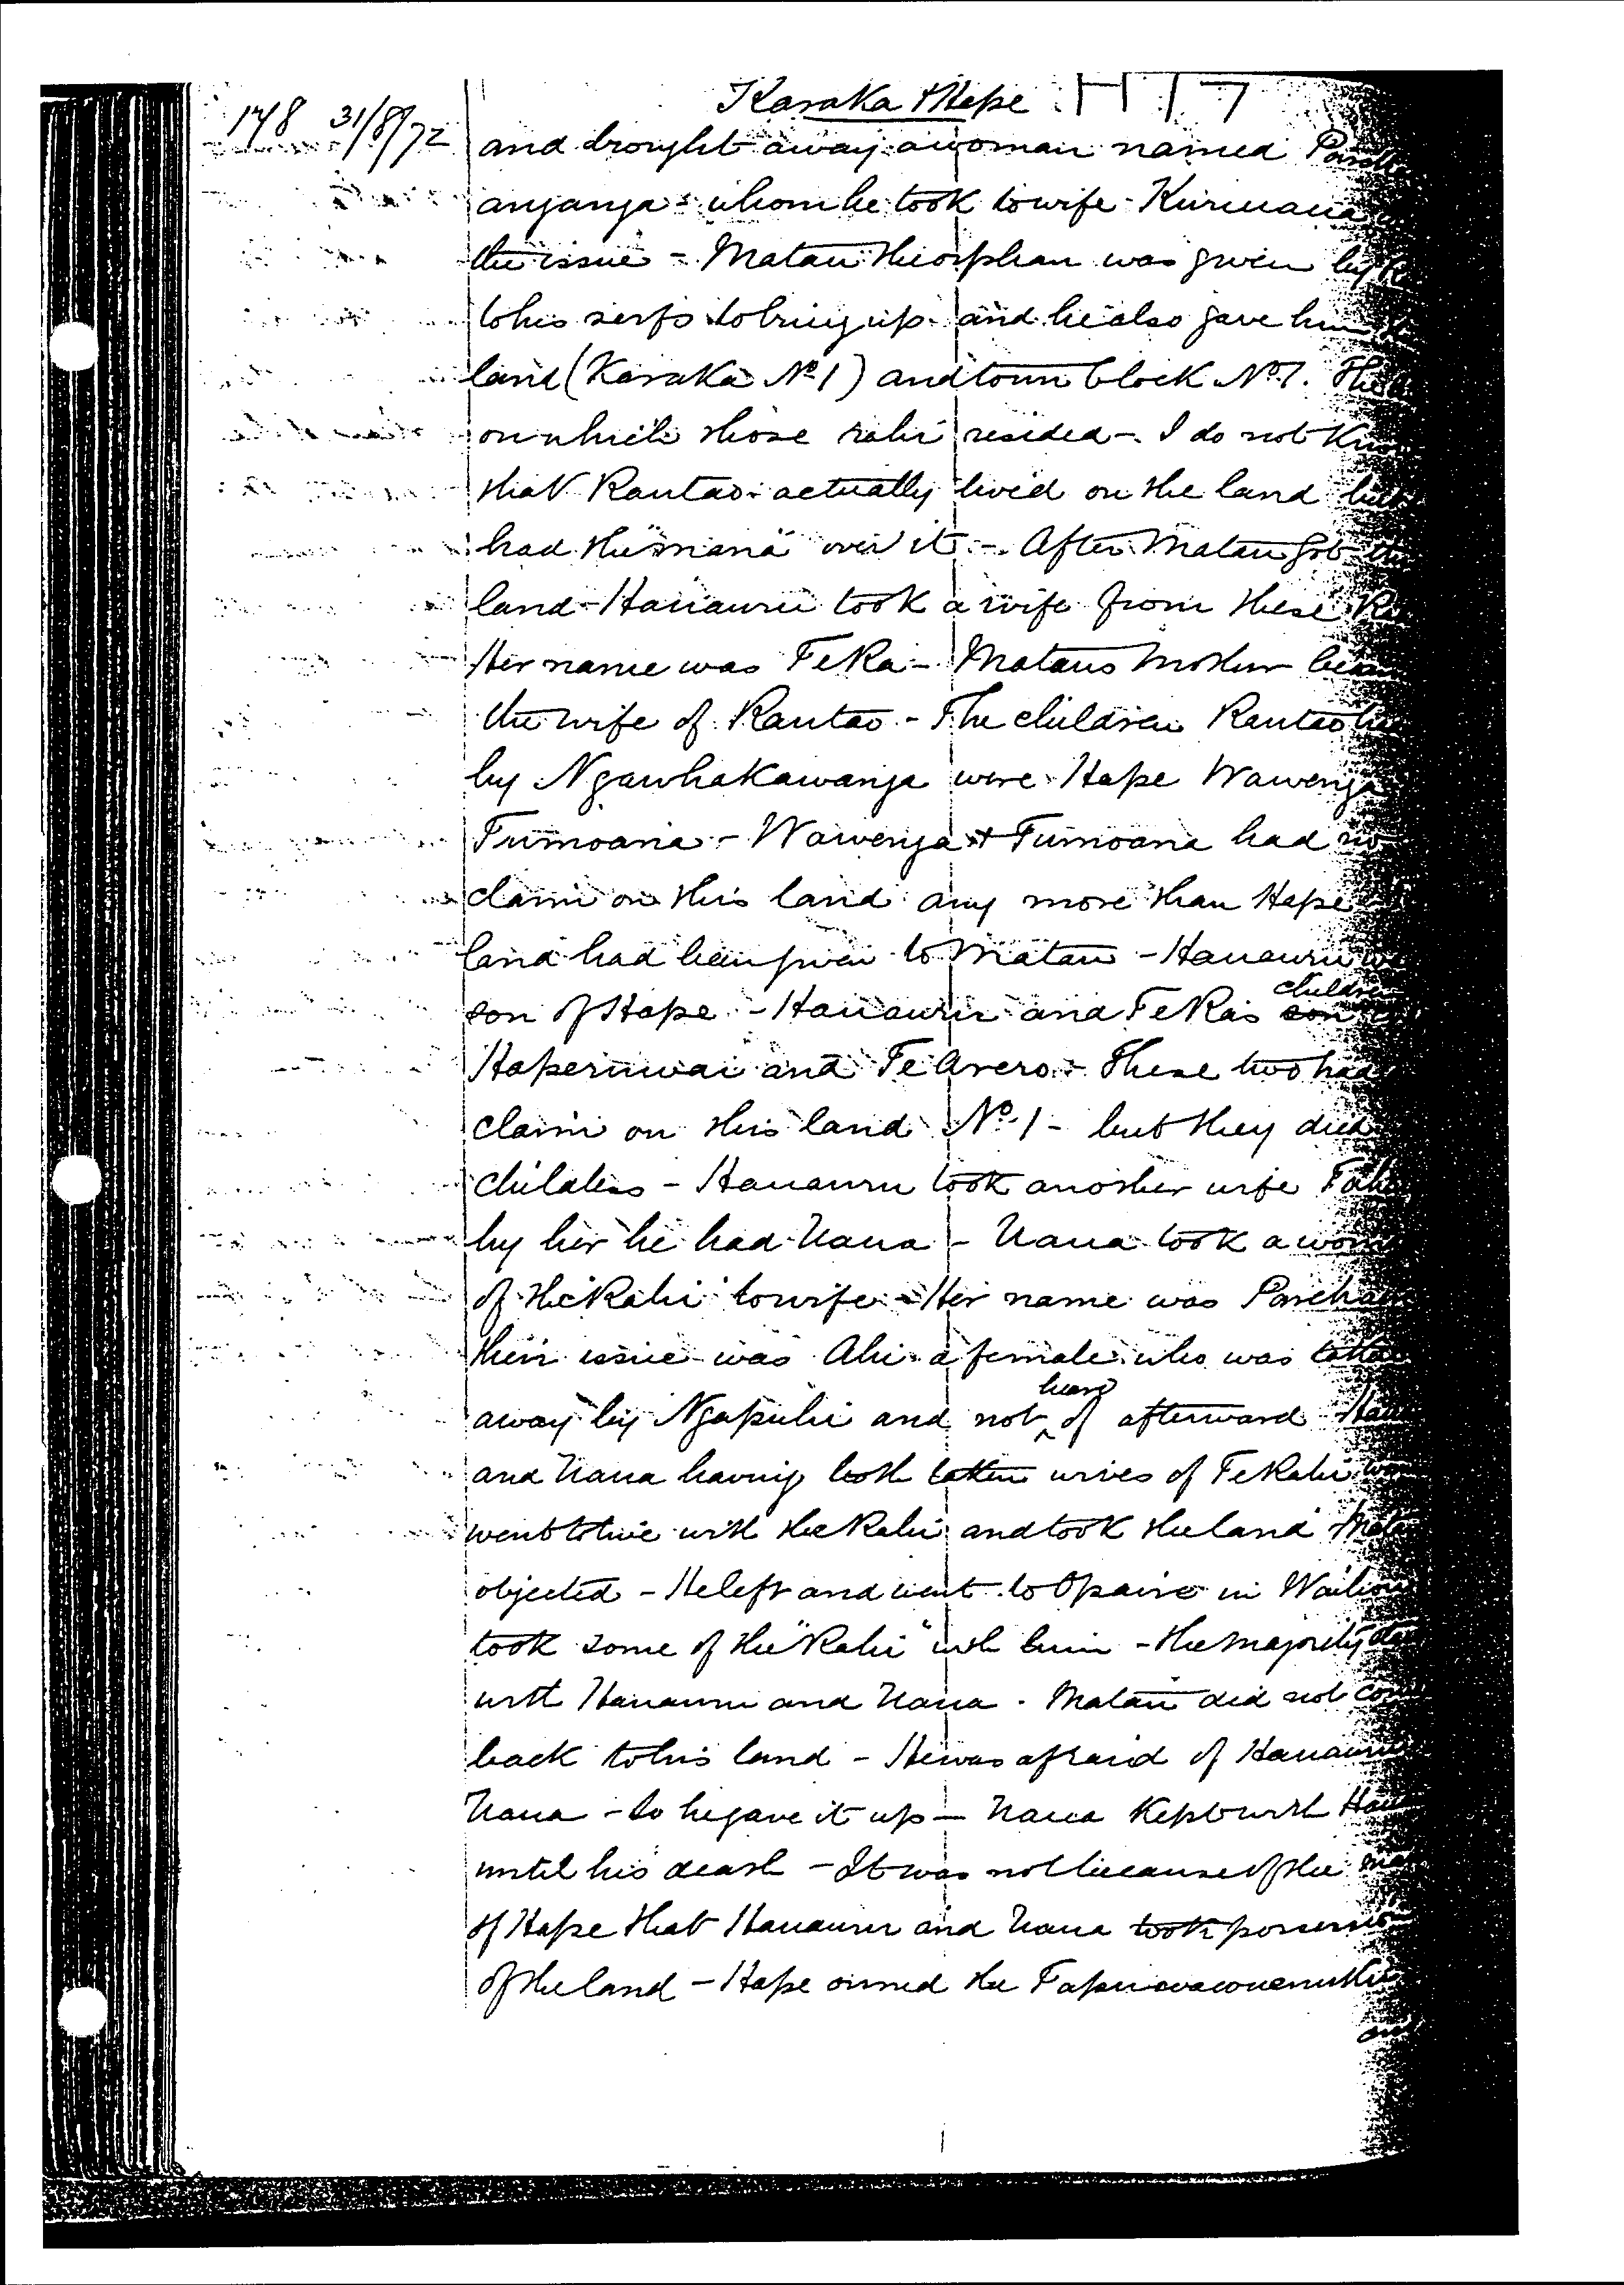 Karaka & Hape H 17
148 31/8/72
and brought away a woman named
anganga - whom he took to wife - Kiriuaua
the issue - Matau the orphan was given by
to his serfs to bring up and he also gave him
land (Karaka No 1) and town block No 7. The
on which those rahi resided - I do not
that Rautao actually lived on the land
had the "mana" over it - After Matau got the
land - Hauauru took a wife from these
Her name was Te Ra - Mataus mother
the wife of Rautao - The children Rautao
by Ngawhakawanga were Hape Wawenga
Tumoana - Wawenga & Tumoana had no
claim on this land any more than Hape
land had been given to Matau - Hauauru
son of Hape - Hauauru and Te Ras son children
Haperiwai and Te Arero - These two had
claim on this land No 1 - but they died
childless - Hauauru took another wife
by her he had Uaua - Uaua took a
of the "Rahi" to wife - Her name was
their issue was Ahi a female who was
away by Ngapuhi and not heard of afterward
and Uaua having both taken wives of Te Rahi
went to live with the Rahi and took the land
objected - He left and went to Opaire in
took some of the "Rahi" with him - the majority
with Hauauru and Uaua. Matau did not
back to his land - He was afraid of Hauauru
Uaua - so he gave it up - Uaua kept with
until his death - It was not because of the
of Hape that Hauauru and Uaua took possession
of the land - Hape owned the